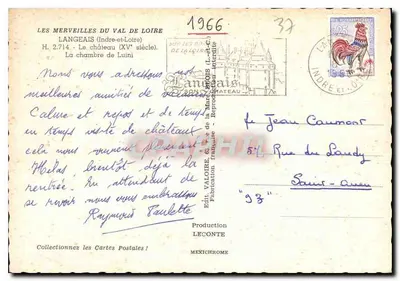 1966
37
LES MERVEILLES DU VAL DE LOIRE
LANGEAIS (Indre-et-Loire)
H. 2.714 - Le château (XVe siècle).
La chambre de Luini
Langeais
SON CHATEAU
INDRE ET LOIRE
Nous vous adressons nos
meilleures amitiés de vacances
Calme et repos et de temps
en temps visite de châteaux
cela nous
Hélas, bientôt déjà la
rentrée. En attendant de
se revoir nous vous embrassons
Raymond Paulette
Edit. VALOIRE,
Fabrication française - Reproduction interdite
Mr Jean Caumont
Rue du Landy
Saint-Ouen
"93"
Production
LECONTE
MEXICHROME
Collectionnez les Cartes Postales !